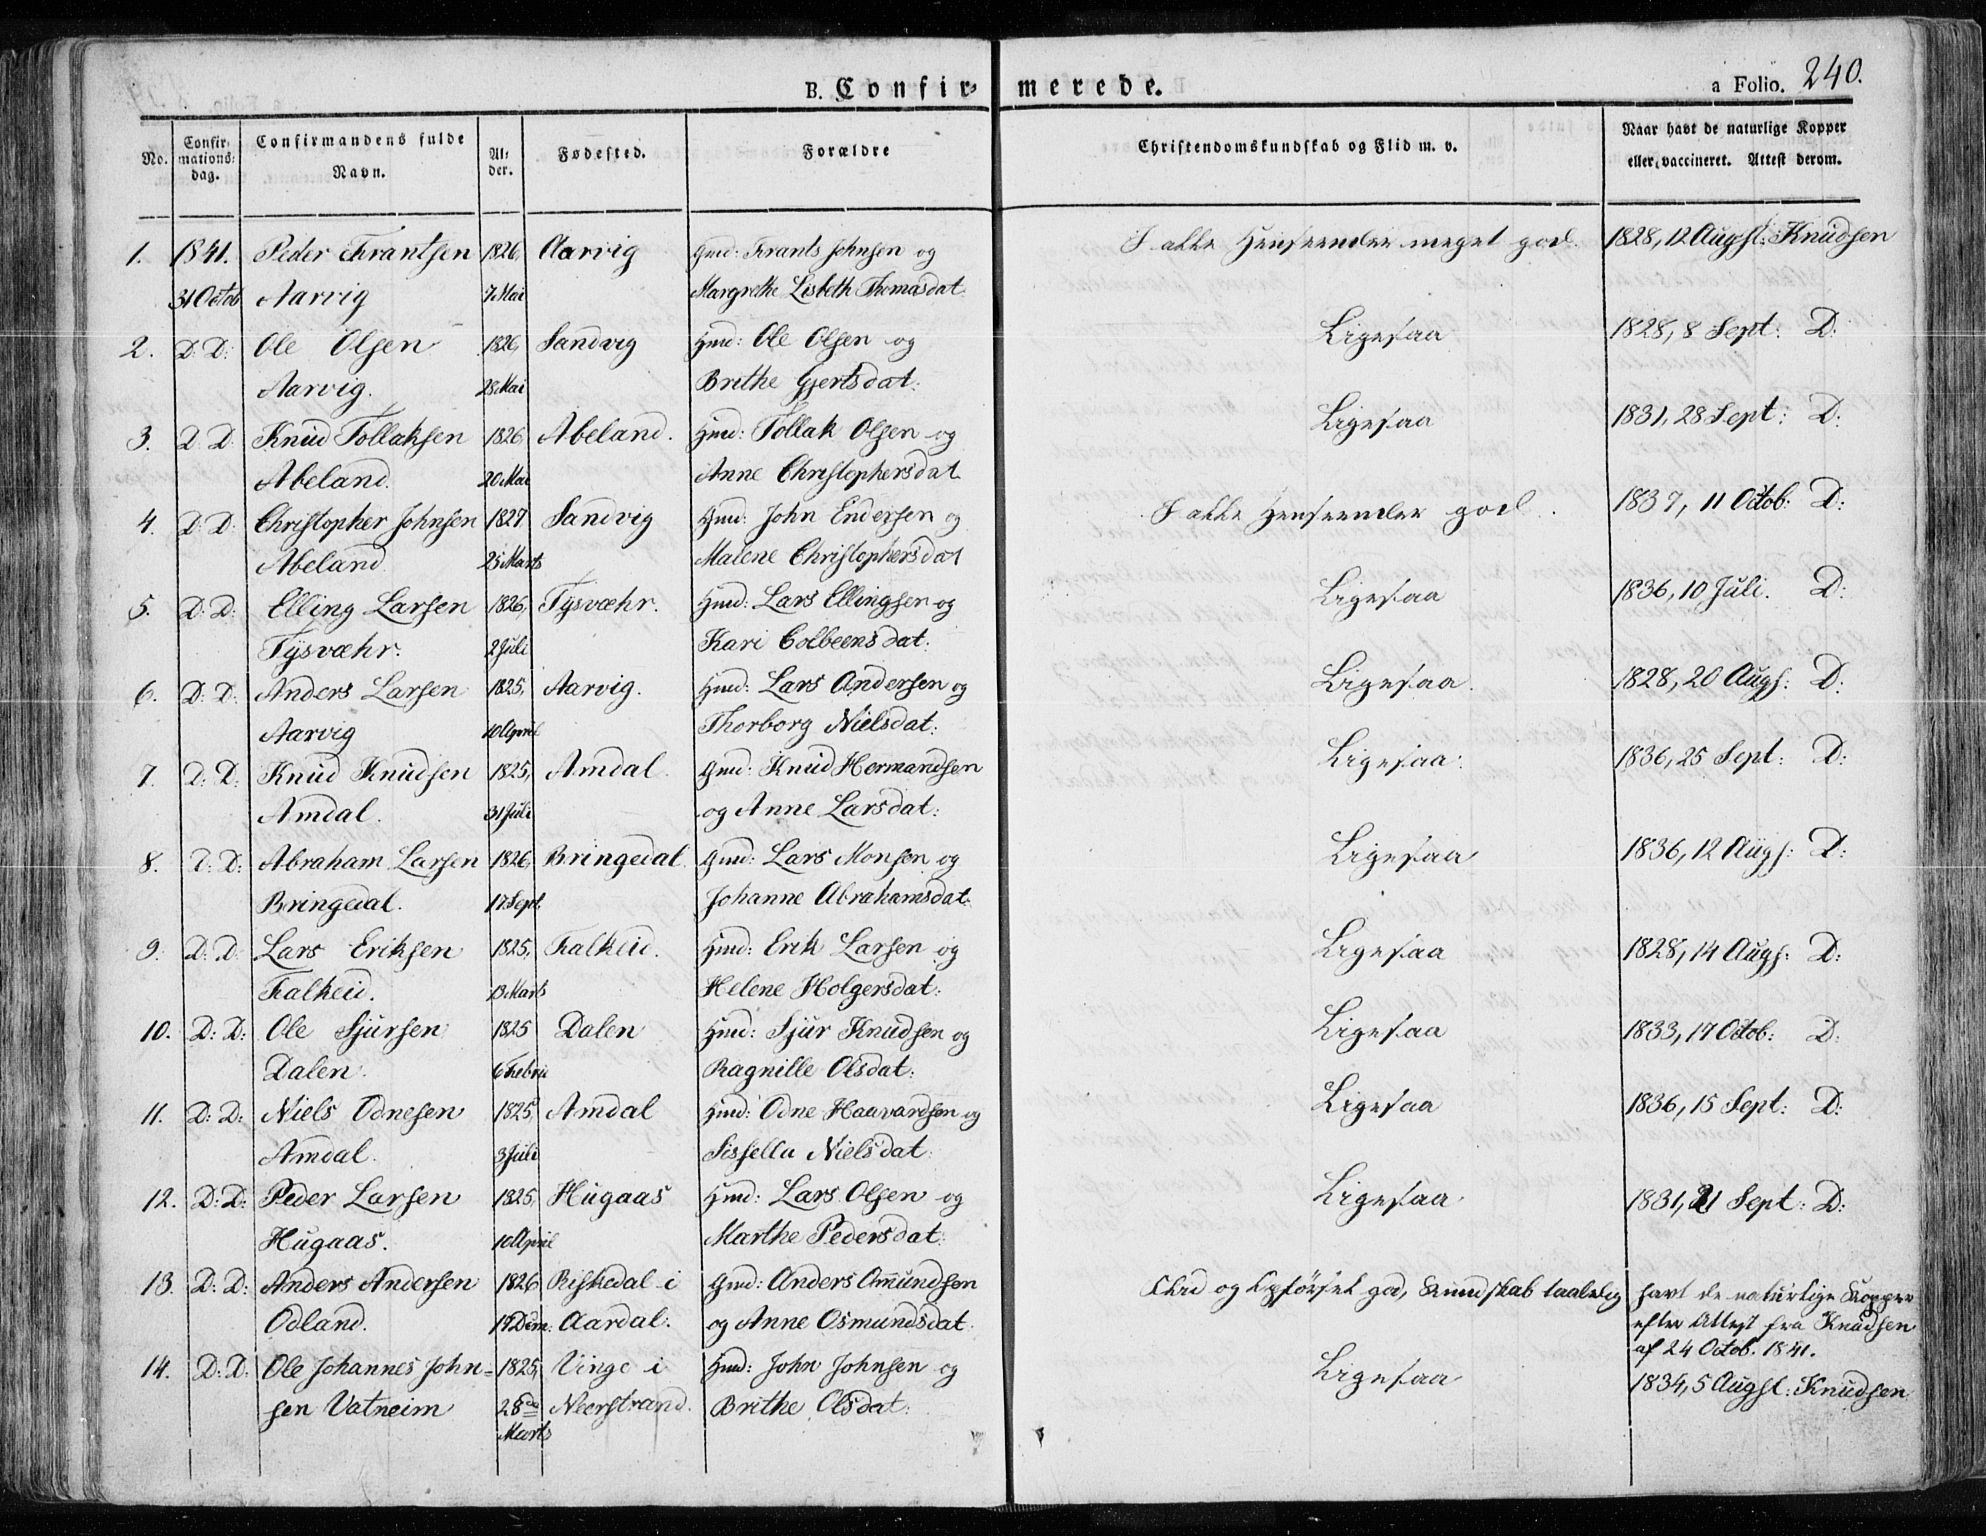 B. Confir- merede. a Folio. 240.
No. Confir-mations-dag. Confirmandens fulde Navn. Al-der. Fødested. Forældre Christendomskundskab og Flid m. v. Naar havt de naturlige Kopper eller vaccineret. Attest derom.
1. 1841. Peder Frantsen 1826, Aarvig Gmd: Frants Johnsen og I alle Henseender meget god. 1828, 12 Augst: Knudsen
31 Octob Aarvig 7 Mai Margrethe Lisbeth Thomasdat
2. D: D: Ole Olsen 1826, Sandvig Hmd: Ole Olsen og Ligesaa 1828, 8 Sept: D:
Aarvig. 28 Mai Brithe Gjertsdat:
3. D: D: Knud Tollaksen 1826 Abeland. Hmd: Tollak Olsen og Ligesaa 1831, 28 Sept: D:
Abeland. 20 Mai Anne Christophersdat
4. D: D: Christopher Johnsen 1827 Sandvig Gmd: John Endersen og I alle Henseender god. 1837, 11 Octob: D:
Abeland 25 Marts Malene Christophersdat
5. D: D: Elling Larsen 1826, Tysvæhr. Hmd: Lars Ellingsen og Ligesaa 1836, 10 Juli. D:
Tysvæhr. 2 Juli Kari Colbeensdat:
6. D: D: Anders Larsen 1825, Aarvig. Hmd: Lars Andersen og Ligesaa. 1828, 20 Augs: D:
Aarvig 10 April Thorborg Nielsdat:
7. D: D: Knud Knudsen 1825, Amdal. Gmd: Knud Hermandsen Ligesaa. 1836, 25 Sept: D:
Amdal. 31 Juli og Anne Larsdat:
8. D: D: Abraham Larsen 1826, Bringedal Gmd: Lars Monsen og Ligesaa 1836, 12 Augs: D:
Bringedal. 17 Sept. Johanne Abrahamsdat:
9. D: D: Lars Eriksen 1825, Falkeid. Hmd: Erik Larsen og Ligesaa 1828, 14 Augs: D:
Falkeid. 13 Marts Helene Holgersdat:
10. D: D: Ole Sjursen 1825 Dalen Hmd: Sjur Knudsen og Ligesaa 1833, 17 Octob: D:
Dalen. 6 Febru Ragnille Olsdat:
11. D: D: Niels Odnesen 1825, Amdal Hmd: Odne Haavardsen og Ligesaa 1836, 15 Sept: D:
Amdal. 3 Juli Sissella Nielsdat:
12. D: D: Peder Larsen 1825, Hugaas Hmd: Lars Olsen og Ligesaa 1831, 21 Sept: D:
Hugaas. 10 April Marthe Pedersdat:
13. D: D: Anders Andersen 1826 Riskedal i Gmd: Anders Amundsen Flid og Opførsel god, Kundskab taalelig havt de naturlige Kopper
Odland. Aardal. og Anne Osmundsdat. efter Attest fra Knudsen
af 24 Octob. 1841.
14. D: D: Ole Johannes John- 1825, Vinge i Hmd: John Johnsen og Ligesaa 1834, 5 Augst: Knudsen
sen Vatneim 28de Marts Neerstrand. Brithe Olsdat: